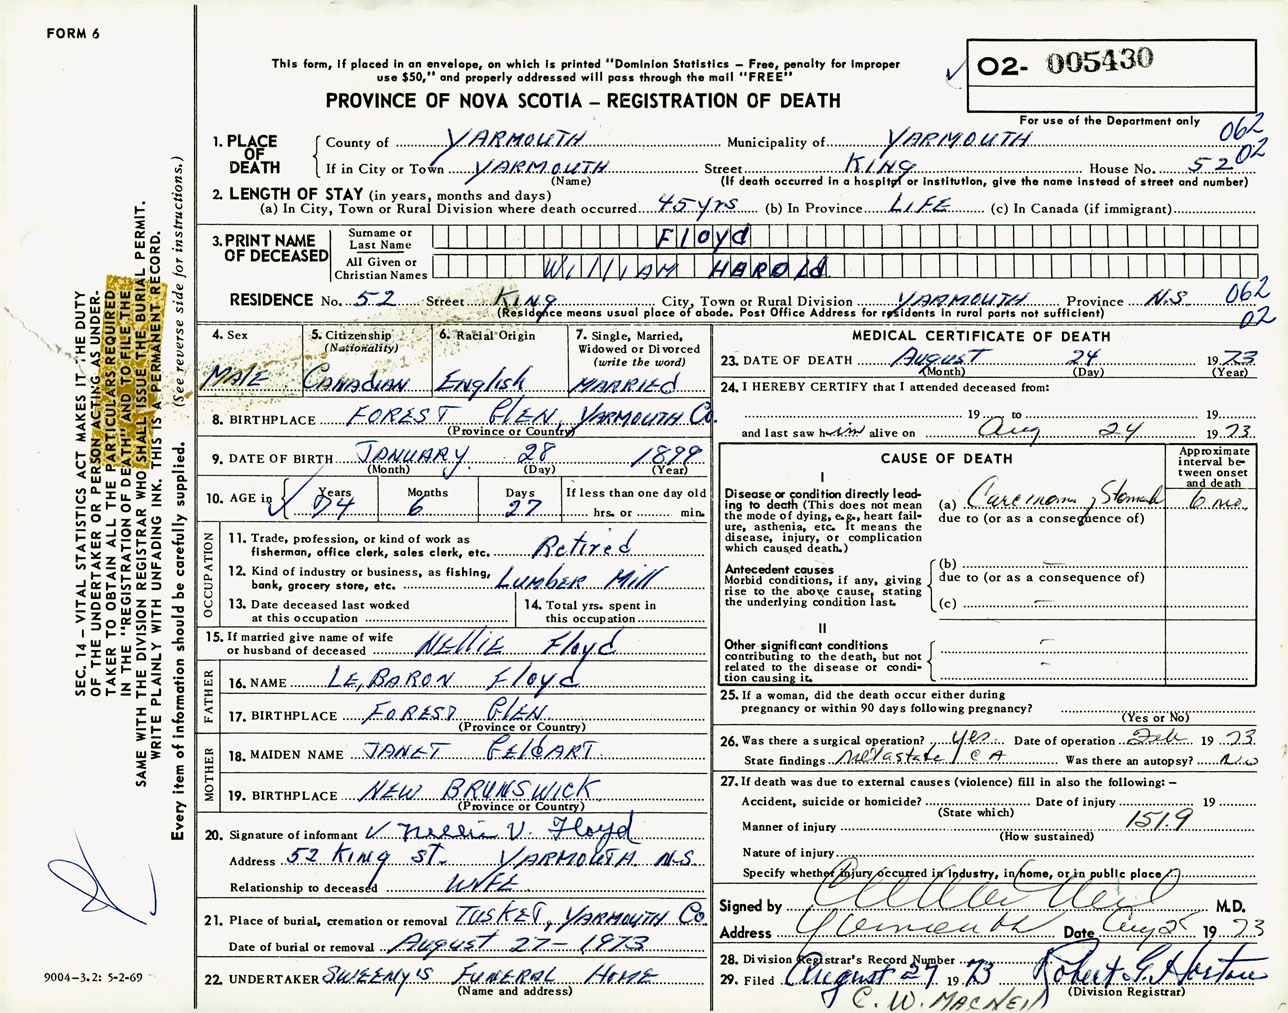 FORM 6
This form, if placed in an envelope, on which is printed "Dominion Statistics – Free, penalty for improper
use $50," and properly addressed will pass through the mail "FREE"
PROVINCE OF NOVA SCOTIA – REGISTRATION OF DEATH
✓ 02- 005430
For use of the Department only
062
02
1. PLACE OF DEATH
County of YARMOUTH Municipality of YARMOUTH
If in City or Town YARMOUTH Street KING House No. 52
(Name) (If death occurred in a hospital or institution, give the name instead of street and number)
2. LENGTH OF STAY (in years, months and days)
(a) In City, Town or Rural Division where death occurred 45 yrs (b) In Province LIFE (c) In Canada (if immigrant)
3. PRINT NAME OF DECEASED
Surname or Last Name Floyd
All Given or Christian Names WIlliAM HAROld
RESIDENCE No. 52 Street KING City, Town or Rural Division YARMOUTH Province N.S. 062
02
(Residence means usual place of abode. Post Office Address for residents in rural parts not sufficient)
4. Sex
MALE
5. Citizenship
(Nationality)
CANADIAN
6. Racial Origin
English
7. Single, Married,
Widowed or Divorced
(write the word)
MARRIED
8. BIRTHPLACE FOREST GLEN, YARMOUTH Co.
(Province or Country)
9. DATE OF BIRTH JANUARY 28 1899
(Month) (Day) (Year)
10. AGE in ✓ Years Months Days If less than one day old
74 6 27 hrs. or min.
OCCUPATION
11. Trade, profession, or kind of work as
fisherman, office clerk, sales clerk, etc. Retired
12. Kind of industry or business, as fishing,
bank, grocery store, etc. Lumber Mill
13. Date deceased last worked
at this occupation
14. Total yrs. spent in
this occupation
15. If married give name of wife
or husband of deceased NEllIE Floyd
FATHER
16. NAME LE,BARON Floyd
17. BIRTHPLACE FOREST GLEN
(Province or Country)
MOTHER
18. MAIDEN NAME JANET GELDART
19. BIRTHPLACE NEW BRUNSWICK
(Province or Country)
20. Signature of informant ✓ Nellie V. Floyd
Address 52 KING ST. YARMOUTH N.S.
Relationship to deceased WIFE
21. Place of burial, cremation or removal TUSKET, YARMOUTH Co
Date of burial or removal AUGUST 27 – 1973
22. UNDERTAKER SWEENY'S FUNERAL HOME
(Name and address)
MEDICAL CERTIFICATE OF DEATH
23. DATE OF DEATH AUGUST 24 1973
(Month) (Day) (Year)
24. I HEREBY CERTIFY that I attended deceased from:
19 to 19
and last saw him alive on Aug 24 1973
CAUSE OF DEATH
Approximate
interval be-
tween onset
and death
I
Disease or condition directly lead-
ing to death (This does not
mean the mode of dying, e.g., heart fail-
ure, asthenia, etc. It means the
disease, injury, or complication
which caused death.)
(a) Carcinoma of Stomach 6 mo.
due to (or as a consequence of)
Antecedent causes
Morbid conditions, if any, giving
rise to the above cause, stating
the underlying condition last.
(b) —
due to (or as a consequence of)
(c) —
II
Other significant conditions
contributing to the death, but not
related to the disease or condi-
tion causing it.
25. If a woman, did the death occur either during
pregnancy or within 90 days following pregnancy?
(Yes or No)
26. Was there a surgical operation? yes Date of operation Feb 1973
State findings metastatic CA Was there an autopsy? No
27. If death was due to external causes (violence) fill in also the following: –
Accident, suicide or homicide? Date of injury 19
(State which)
Manner of injury 151.9
(How sustained)
Nature of injury
Specify whether injury occurred in industry, in home, or in public place
Signed by M.D.
Address Yarmouth Date Aug 25 1973
28. Division Registrar's Record Number
29. Filed August 27 1973 Robert G. Horton
(Division Registrar)
C. W. MACNEIL
SEC. 14 – VITAL STATISTICS ACT MAKES IT THE DUTY
OF THE UNDERTAKER OR PERSON ACTING AS UNDER-
TAKER TO OBTAIN ALL THE PARTICULARS REQUIRED
IN THE "REGISTRATION OF DEATH" AND TO FILE THE
SAME WITH THE DIVISION REGISTRAR WHO SHALL ISSUE THE BURIAL PERMIT.
WRITE PLAINLY WITH UNFADING INK. THIS IS A PERMANENT RECORD.
Every item of information should be carefully supplied. (See reverse side for instructions.)
9004-3.2: 5-2-69